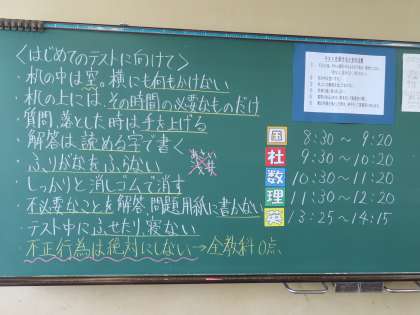 〈はじめてのテストに向けて〉
・机の中は空。横にも何もかけない
・机の上には、その時間の必要なものだけ
・質問、落とした時は手を上げる
・解答は読める字で書く
ふりがなをふらない
しっかりと消しゴムで消す
不必要なことを解答、問題用紙に書かない
・テスト中にふせたり、寝ない
・不正行為は絶対にしない→全教科0点
国 8:30〜9:20
社 9:30〜10:20
数 10:30〜11:20
理 11:30〜12:20
英 13:25〜14:15